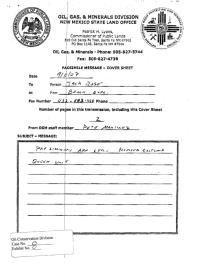 OIL, GAS, & MINERALS DIVISION
NEW MEXICO STATE LAND OFFICE
Patrick H. Lyons,
Commissioner of Public Lands
310 Old Santa Fe Trail, Santa Fe NM 87501
PO Box 1148, Santa Fe NM 87504
Oil, Gas, & Minerals - Phone: 505-827-5744
Fax: 505-827-4739
FACSIMILE MESSAGE - COVER SHEET
Date
To Person Jack Rose
At Firm
Fax Number Phone
Number of pages in this transmission, including this Cover Sheet
2
From OGM staff member Pete Martinez
SUBJECT - MESSAGE:
Queen Unit
Oil Conservation Division
Case No.
Exhibit No.